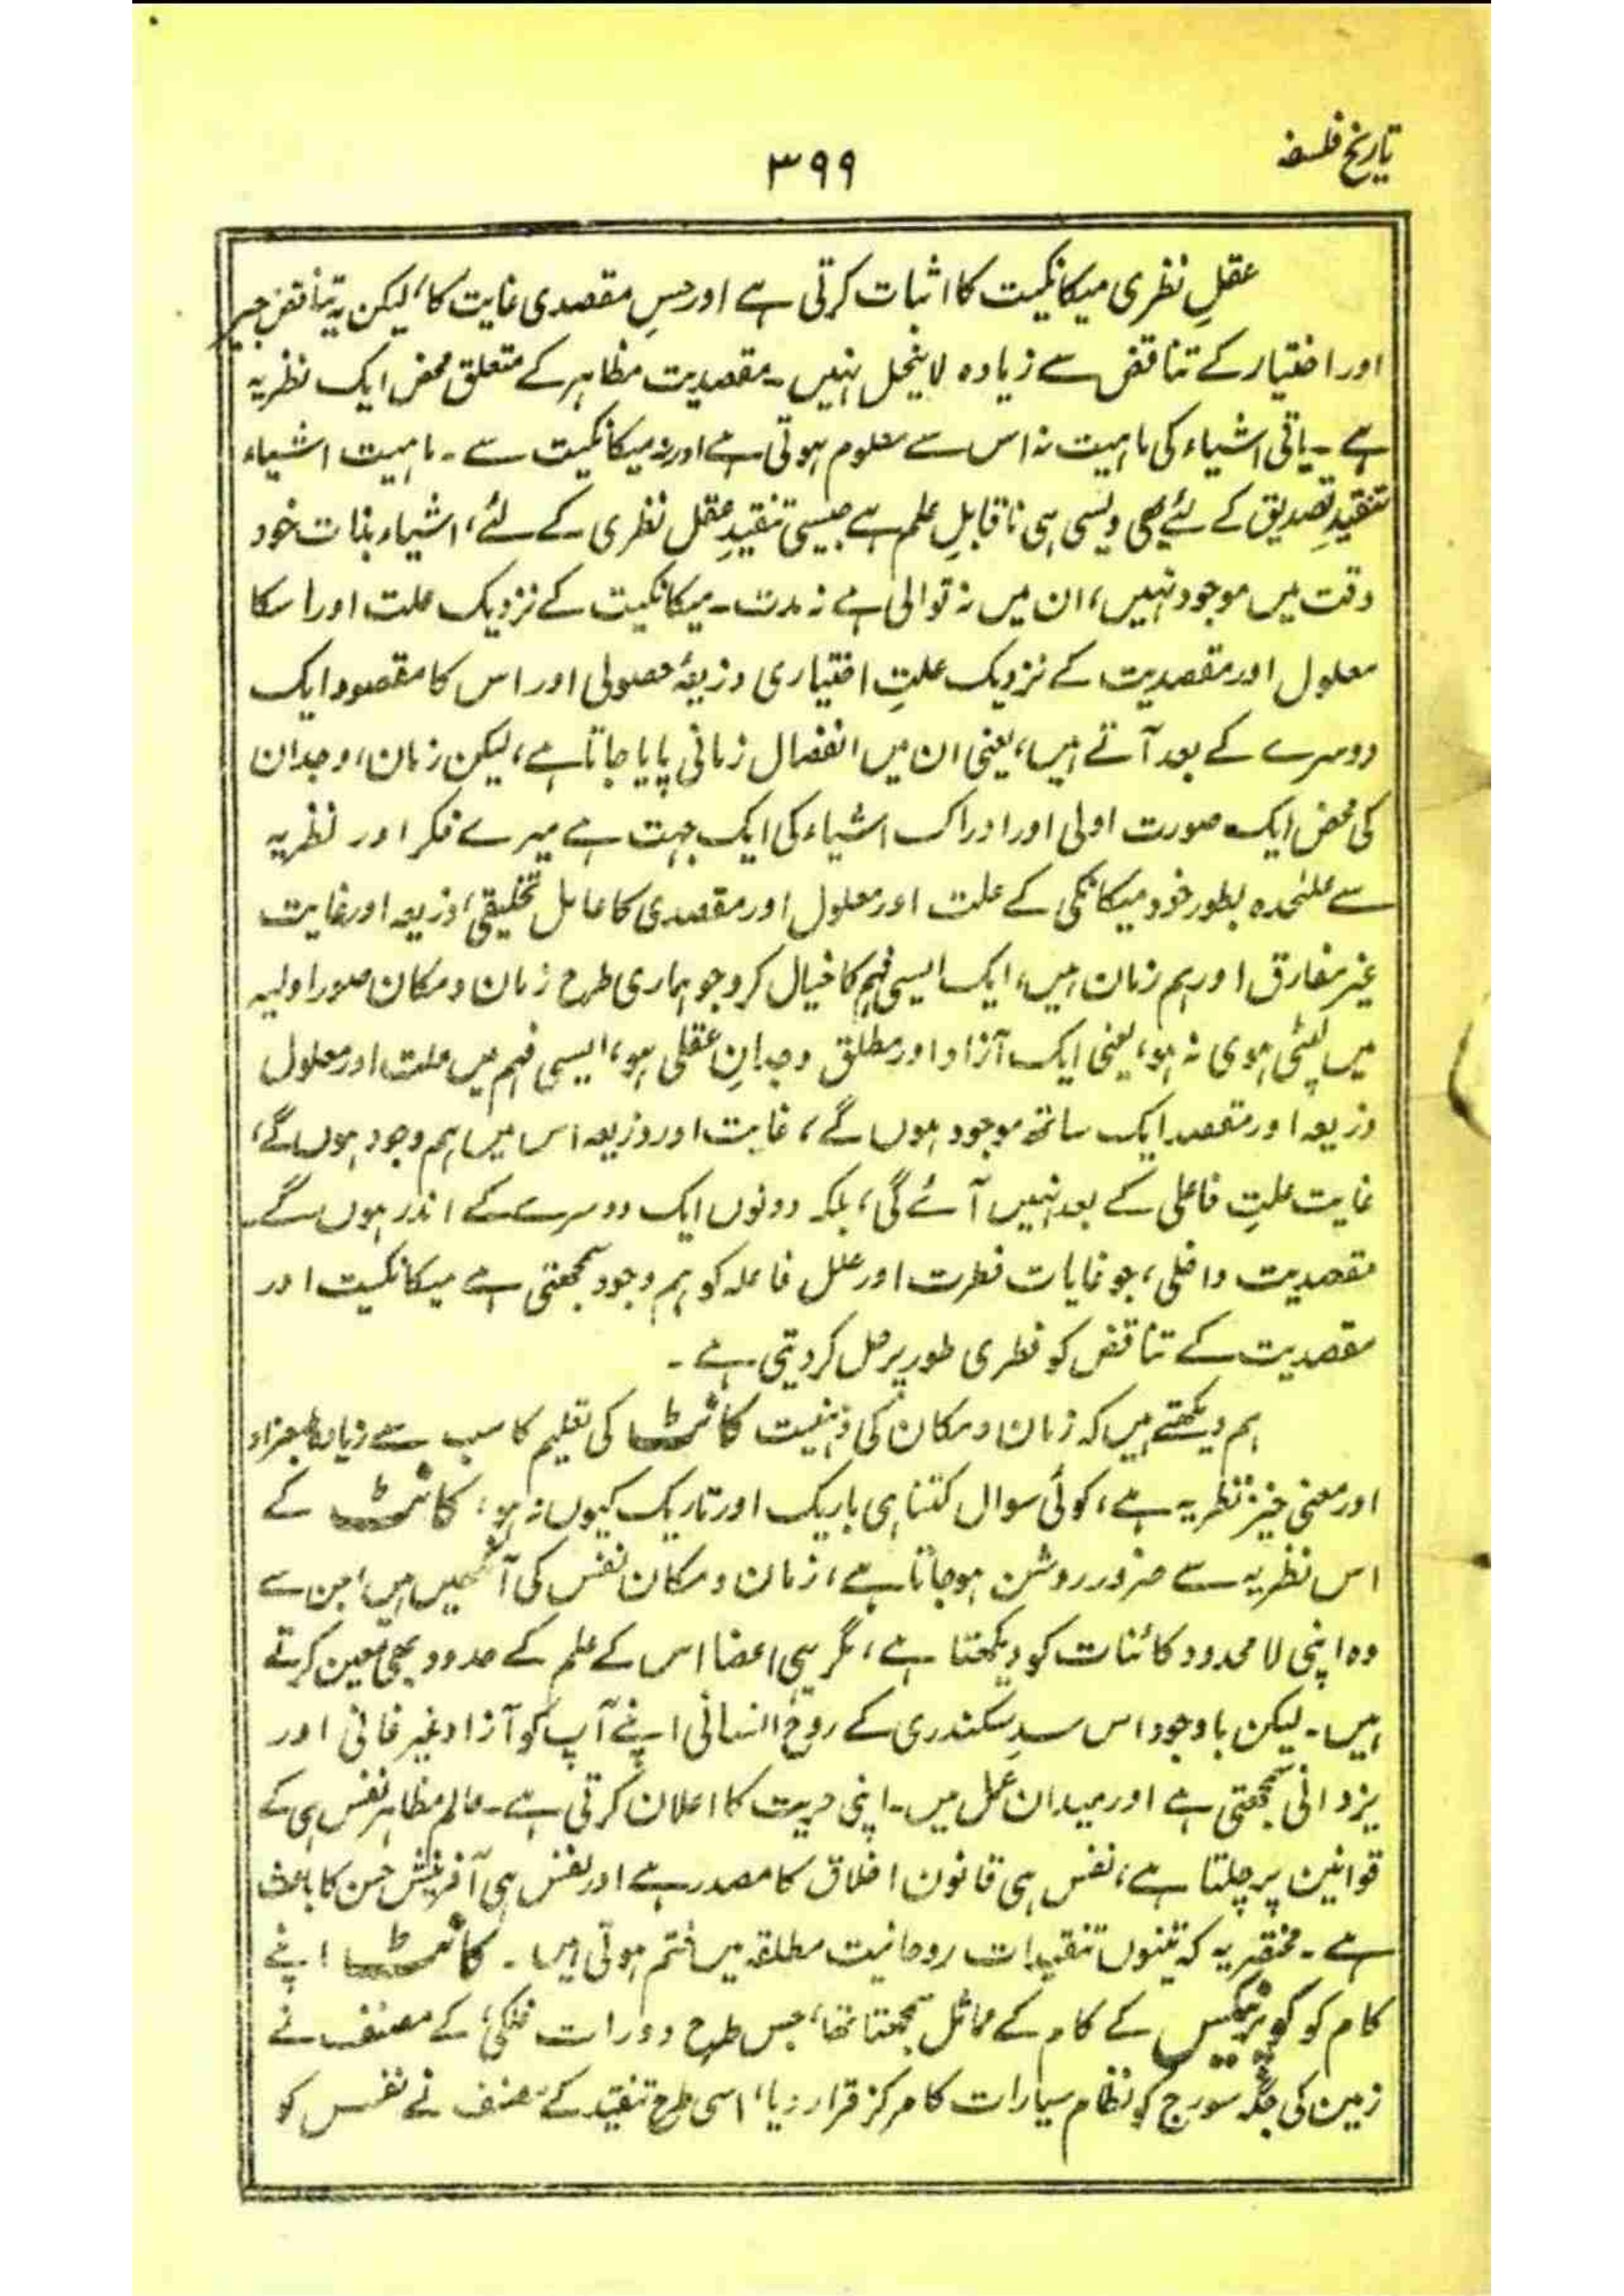 تاریخ فلسفہ
۳۹۹
عقلِ نظری میکانکیت کا اثبات کرتی ہے اور حسِ مقصدی غایت کا، لیکن یہ تناقض جبر
اور اختیار کے تناقض سے زیادہ لاینحل نہیں۔ مقصدیت مظاہر کے متعلق محض ایک نظریہ
ہے۔ باقی اشیاء کی ماہیت نہ اس سے معلوم ہوتی ہے اور نہ میکانکیت سے۔ ماہیت اشیاء
تنقیدِ تصدیق کے لئے بھی ویسی ہی ناقابلِ علم ہے جیسی تنقیدِ عقل نظری کے لئے، اشیاء بذات خود
وقت میں موجود نہیں، ان میں نہ توالی ہے نہ مدت۔ میکانکیت کے نزدیک علت اور اسکا
معلول اور مقصدیت کے نزدیک علتِ اختیاری و ذریعۂ حصولی اور اس کا مقصود ایک
دوسرے کے بعد آتے ہیں، یعنی ان میں انفصال زمانی پایا جاتا ہے، لیکن زمان، وجدان
کی محض ایک صورت اولی اور ادراک اشیاء کی ایک جہت ہے میرے فکر اور نظریہ
سے علٰحدہ بطور خود میکانکی کے علت اور معلول اور مقصدی کا عامل تخلیقی، ذریعہ اور غایت
غیر مفارق اور ہم زمان ہیں، ایک ایسی فہم کا خیال کرو جو ہماری طرح زمان و مکان صور اولیہ
میں لپٹی ہوی نہ ہو، یعنی ایک آزاد اور مطلق وجدانِ عقلی ہو، ایسی فہم میں علت اور معلول
ذریعہ اور مقصد ایک ساتھ موجود ہوں گے، غایت اور ذریعہ اس میں ہم وجود ہوں گے،
غایت علتِ فاعلی کے بعد نہیں آئے گی، بلکہ دونوں ایک دوسرے کے اندر ہوں گے۔
مقصدیت داخلی، جو غایات فطرت اور علل فاعلہ کو ہم وجود سمجھتی ہے میکانکیت اور
مقصدیت کے تناقض کو فطری طور پر حل کر دیتی ہے۔
ہم دیکھتے ہیں کہ زمان و مکان کی ذہنیت کانٹ کی تعلیم کا سب سے زیادہ
اور معنی خیز نظریہ ہے، کوئی سوال کتنا ہی باریک اور تاریک کیوں نہ ہو، کانٹ کے
اس نظریہ سے ضرور روشن ہو جاتا ہے، زمان و مکان نفس کی آنکھیں ہیں جن سے
وہ اپنی لا محدود کائنات کو دیکھتا ہے، مگر یہی اعضا اس کے علم کے حدود بھی معین کرتے
ہیں۔ لیکن باوجود اس سدِ سکندری کے روحِ انسانی اپنے آپ کو آزاد غیر فانی اور
یزدانی سمجھتی ہے اور میدان عمل میں۔ اپنی حریت کا اعلان کرتی ہے۔ عالم مظاہر نفس ہی کے
قوانین پر چلتا ہے، نفس ہی قانون اخلاق کا مصدر ہے اور نفس ہی آفرینش حسن کا باعث
ہے۔ مختصر یہ کہ تینوں تنقیدات روحانیت مطلقہ میں ختم ہوتی ہیں۔ کانٹ اپنے
کام کو کوپرنیکس کے کام کے مماثل سمجھتا تھا، جس طرح دورات فلکی، کے مصنف نے
زمین کی جگہ سورج کو نظام سیارات کا مرکز قرار دیا، اسی طرح تنقید کے مصنف نے نفس کو